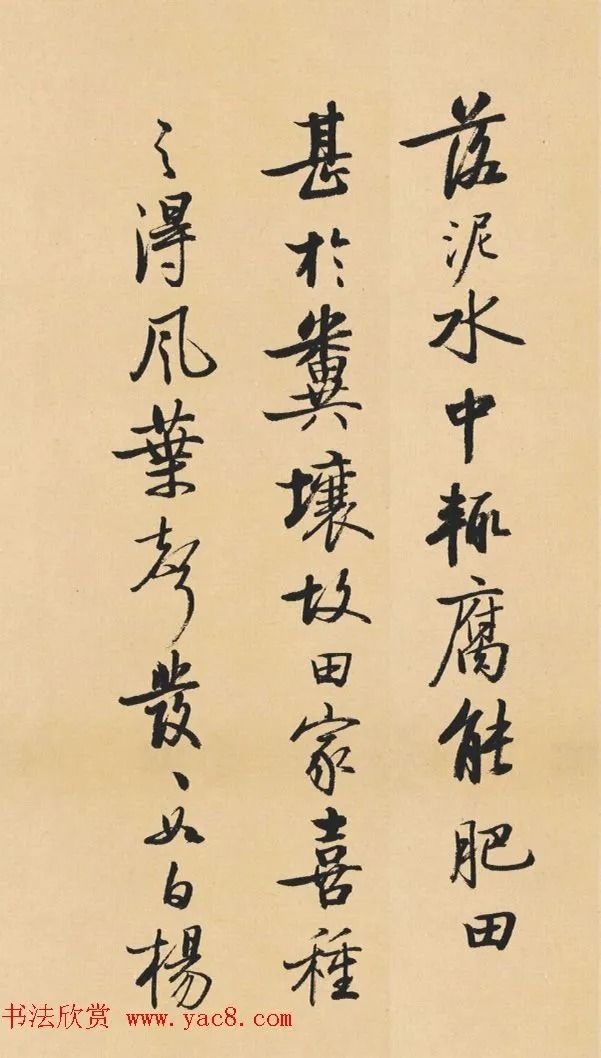 落泥水中輒腐能肥田
甚於糞壤故田家喜種
之得風葉聲發〻如白楊
书法欣赏 www.yac8.com